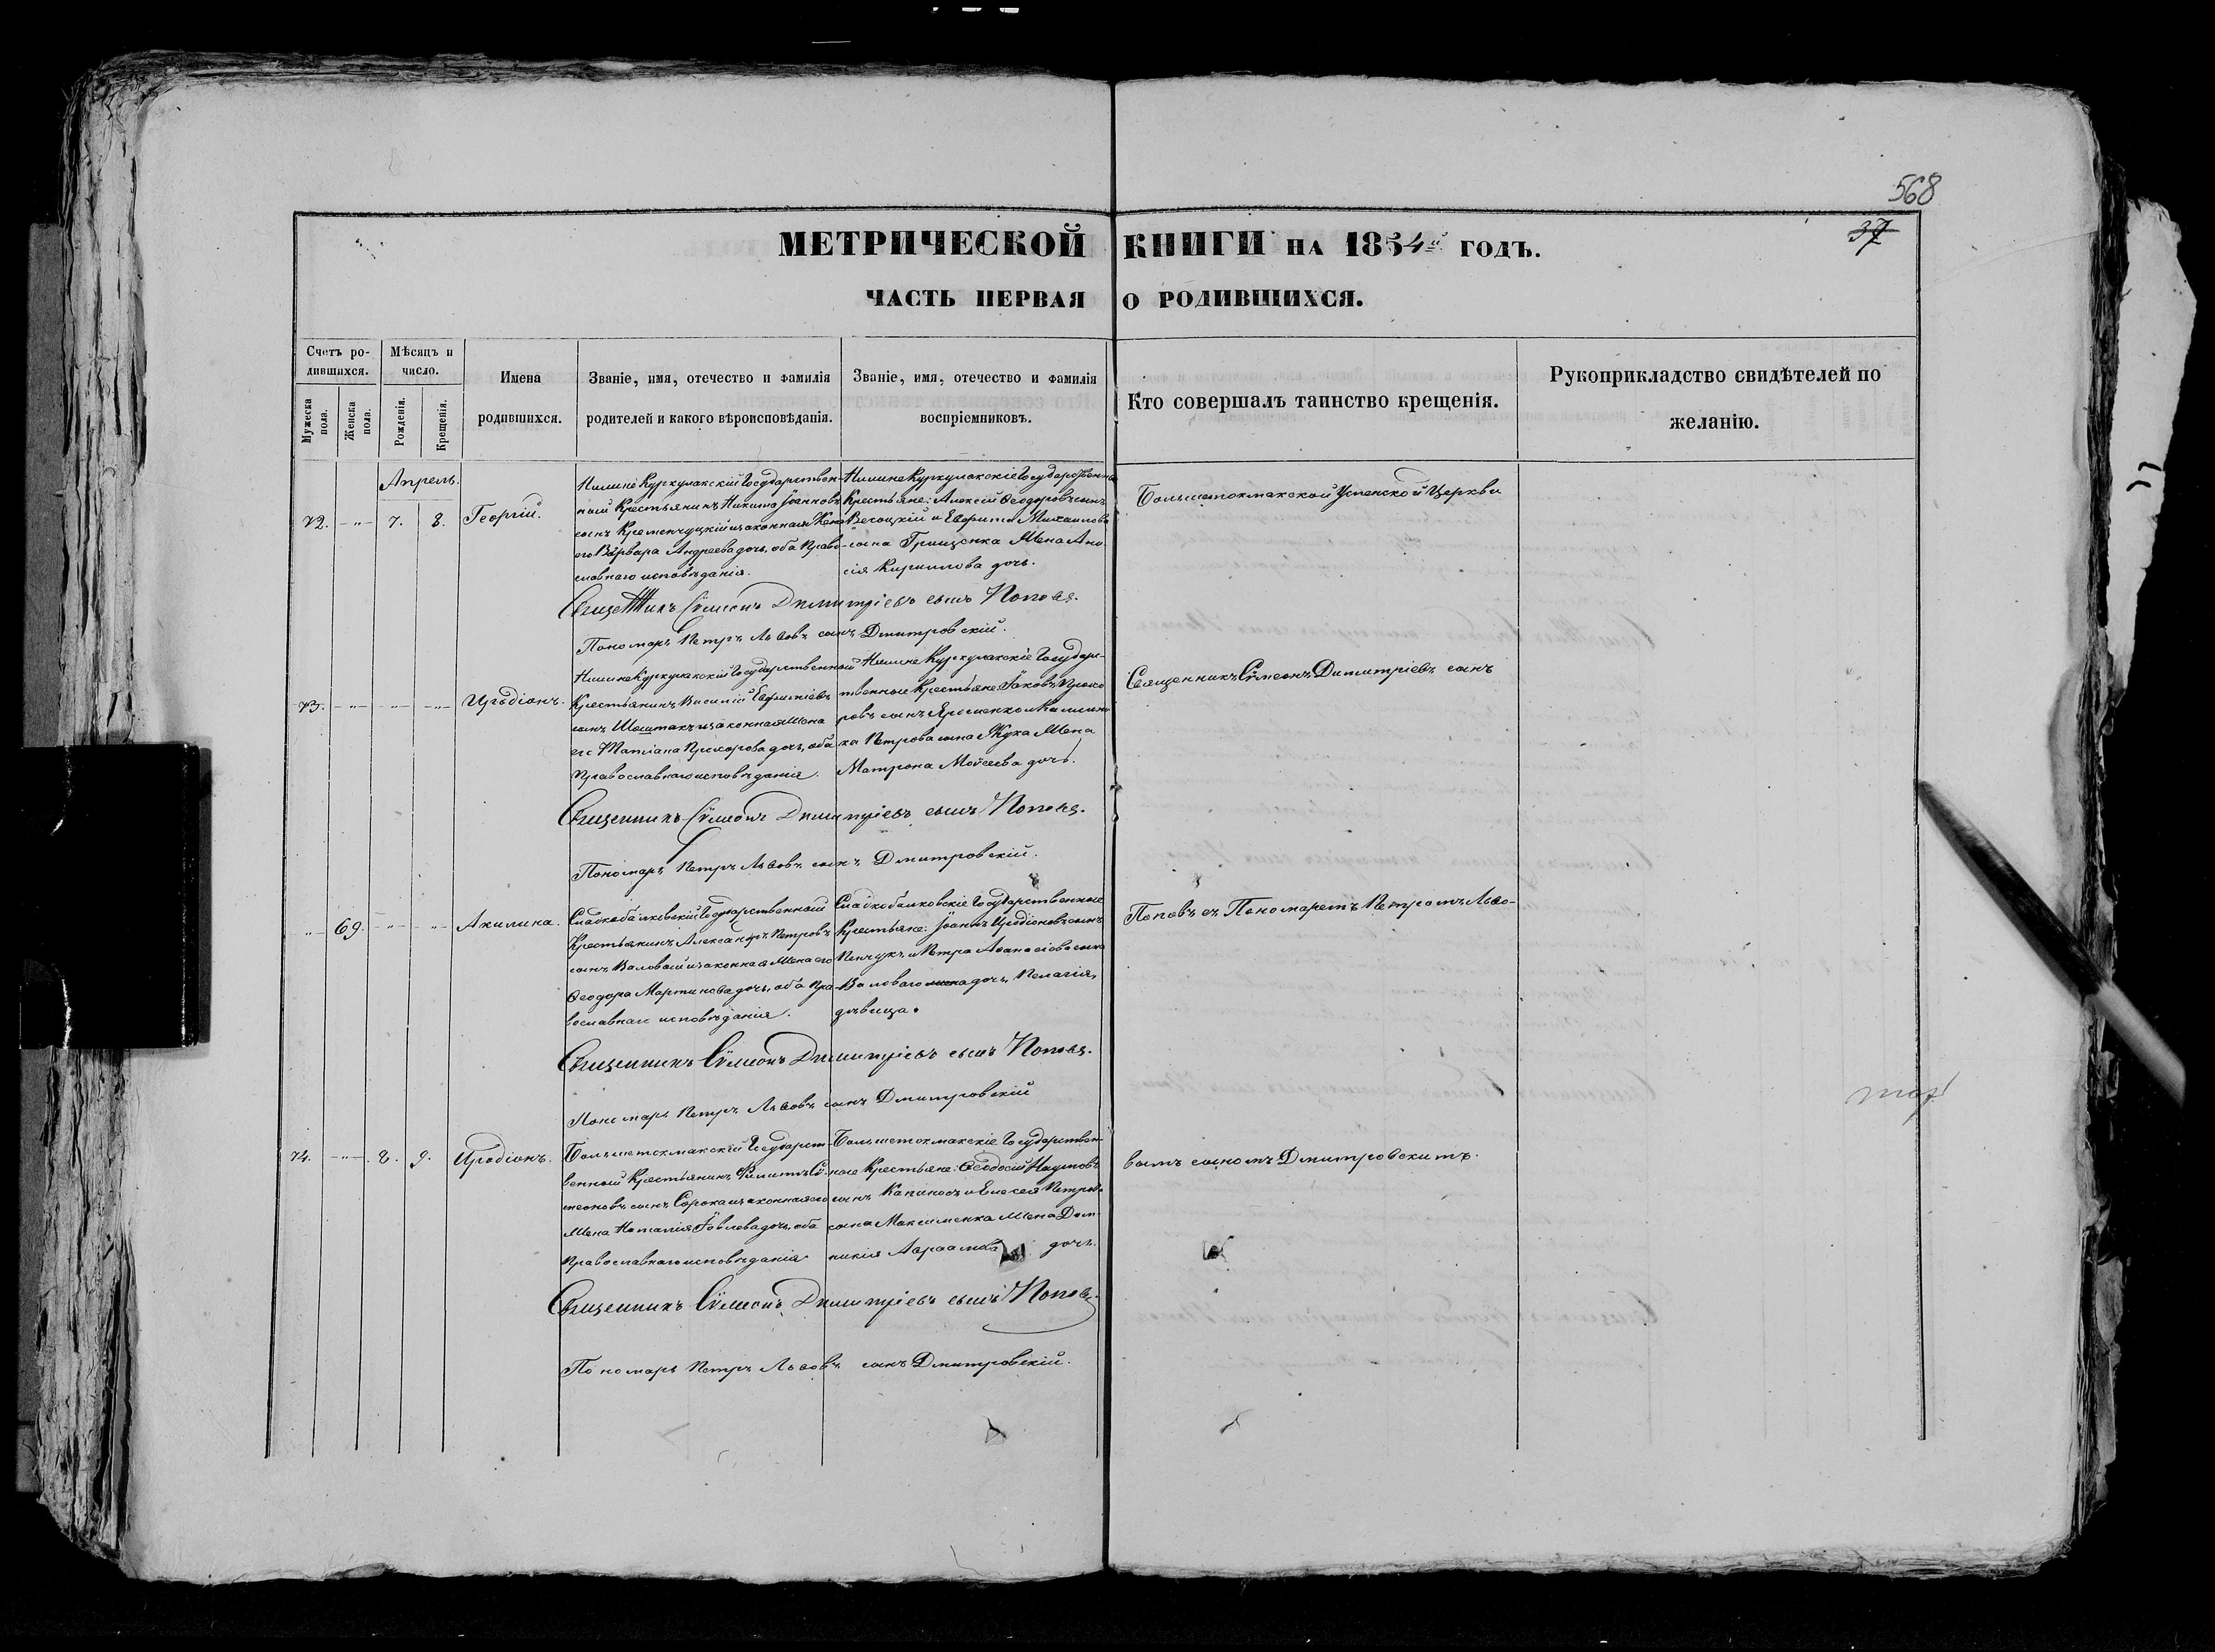 568
37
МЕТРИЧЕСКОЙ КНИГИ НА 1854й ГОДЪ.
ЧАСТЬ ПЕРВАЯ О РОДИВШИХСЯ.
Счетъ ро-
дившихся.
Мужеска пола.
Женска пола.
Мѣсяцъ и
число.
Рожденія.
Крещенія.
Имена
родившихся.
Званіе, имя, отечество и фамилія
родителей и какого вѣроисповѣданія.
Званіе, имя, отечество и фамилія
воспріемниковъ.
Кто совершалъ таинство крещенія.
Рукоприкладство свидѣтелей по
желанію.
Апрель.
72. -"- 7. 8. Георгій.
Нижне Куркулакскій Государствен-
ный Крестьянинъ Никита Іоанновъ
сынъ Кременчуцкій и законная Жена
его Варвара Андреева дочь, оба Право-
славнаго исповѣданія.
Нижне Куркулакскіе Государственные
Крестьяне: Алексій Ѳеодоровъ сынъ
и Евфима Михаилова
сына Грищенка Жена Ана-
сія Кириллова дочь.
Большетокмакской Успенской Церкви
Священникъ Сѵмеонъ Димитріевъ сынъ Поповъ.
Пономарь Петръ Львовъ сынъ Дмитровскій.
73. -"- -"- -"- Иродіонъ.
Нижне Куркулакскій Государственный
Крестьянинъ Василій Евфиміевъ
сынъ Шостакъ и законная Жена
его Татіана Прохорова дочь, оба
Православнаго исповѣданія.
Нижне Куркулакскіе Государс-
твенные Крестьяне: Іаковъ Прохо-
ровъ сынъ Яременко и Каллини-
ка Петрова сына Жука Жена
Матрона Моѵсеева дочь.
Священникъ Сѵмеонъ Димитріевъ сынъ
Священникъ Сѵмеонъ Димитріевъ сынъ Поповъ.
Пономарь Петръ Львовъ сынъ Дмитровскій.
-"- 69. -"- -"- Акилина.
Сладкобалковскій Государственный
Крестьянинъ Александръ Петровъ
сынъ Валовый и законная Жена его
Ѳеодора Мартинова дочь, оба Пра-
вославнаго исповѣданія.
Сладкобалковскіе Государственные
Крестьяне: Іоаннъ Иродіоновъ сынъ
Пенчукъ и Петра Аѳанасіова сына
Валоваго дочь, Пелагія,
дѣвица.
Поповъ съ Пономаремъ Петромъ Льво-
Священникъ Сѵмеонъ Димитріевъ сынъ Поповъ.
Пономарь Петръ Львовъ сынъ Дмитровскій
74. -"- 8. 9. Иродіонъ.
Большетокмакскій Государст-
венный Крестьянинъ Филиппъ Сѵ-
меоновъ сынъ Сорока и законная его
Жена Наталія Іовлева дочь, оба
Православнаго исповѣданія
Большетокмакскіе Государствен-
ные Крестьяне: Ѳеодосій Наумовъ
сынъ Капиносъ и Елисея Петрова
сына Максименка Жена Дом-
никія Авраамова дочь.
вымъ сыномъ Дмитровскимъ.
Священникъ Сѵмеонъ Димитріевъ сынъ Поповъ.
Пономарь Петръ Львовъ сынъ Дмитровскій.